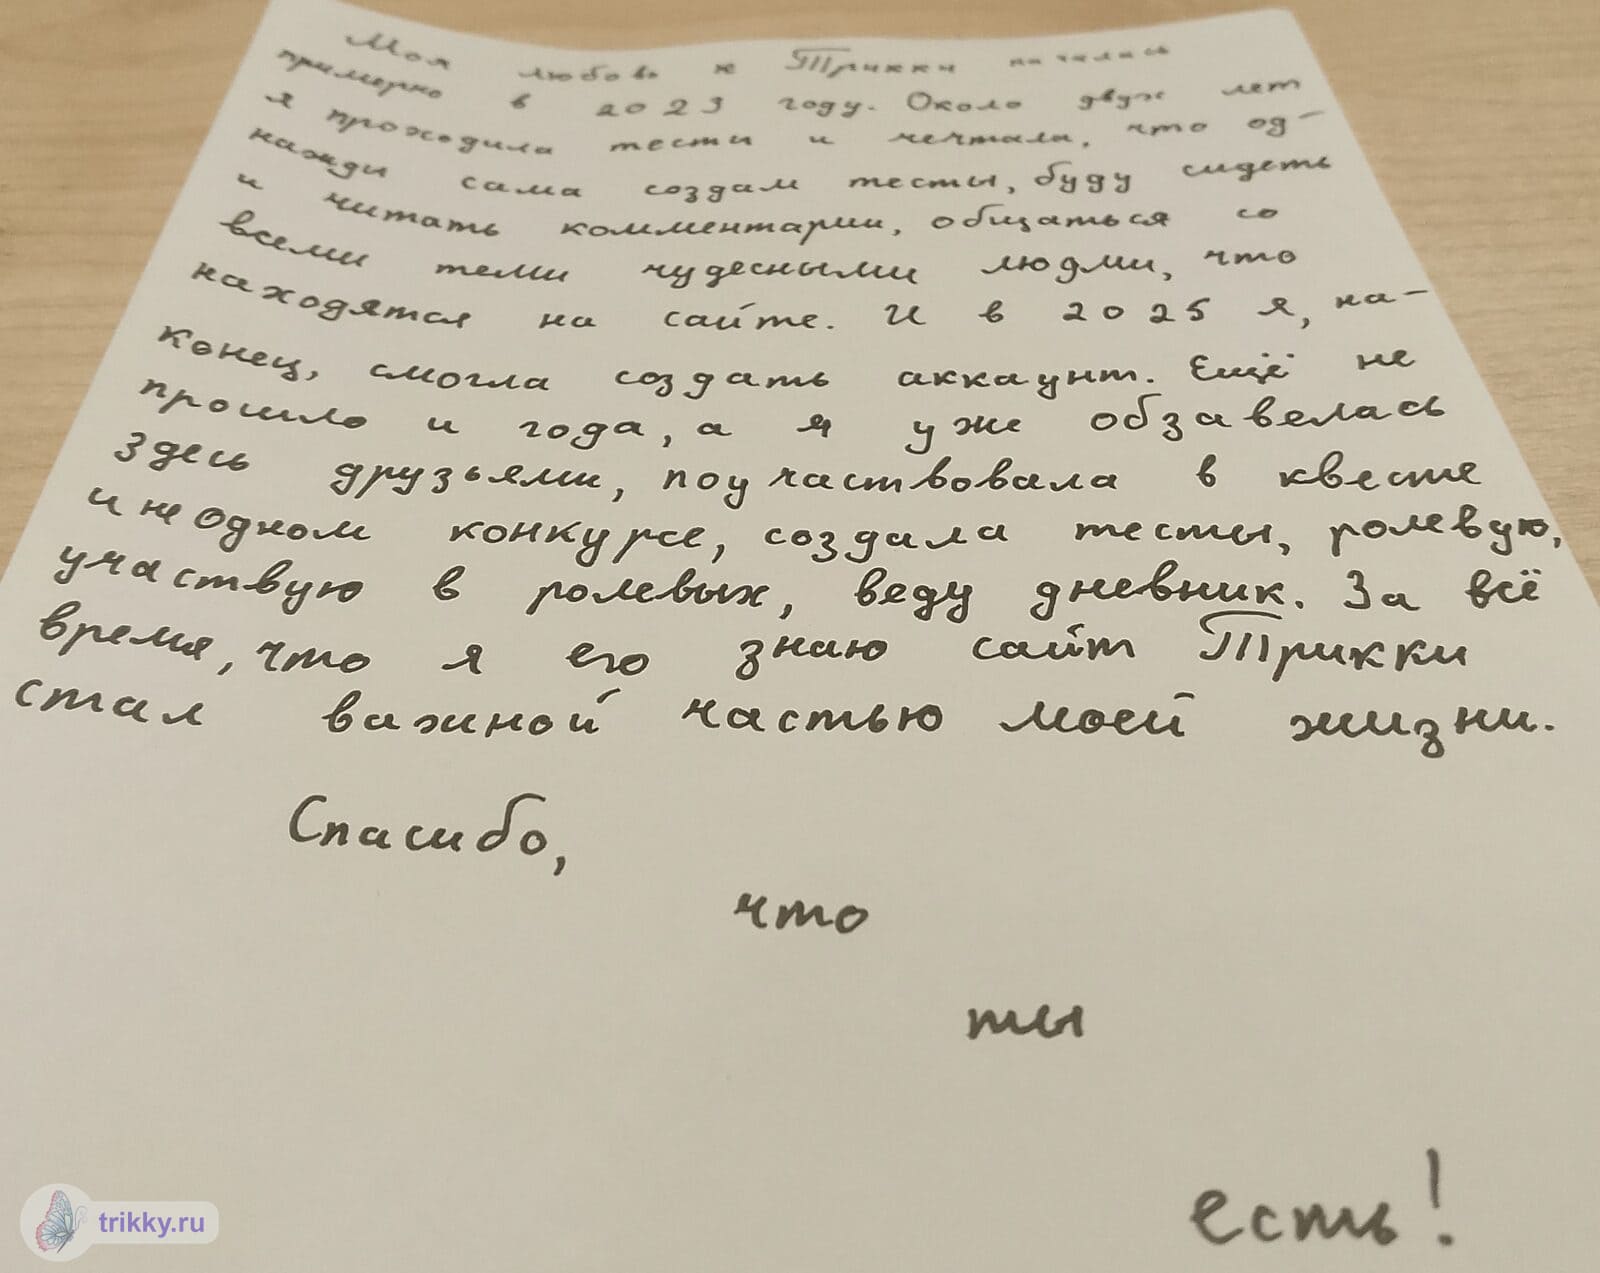 Моя любовь к Трикки началась
примерно в 2023 году. Около двух лет
я проходила тесты и мечтала, что од-
нажды сама создам тесты, буду сидеть
и читать комментарии, общаться со
всеми теми чудесными людми, что
находятся на сайте. И в 2025 я, на-
конец, смогла создать аккаунт. Ещё не
прошло и года, а я уже обзавелась
здесь друзьями, поучаствовала в квесте
и не одном конкурсе, создала тесты, ролевую,
участвую в ролевых, веду дневник. За всё
время, что я его знаю сайт Трикки
стал важной частью моей жизни.
Спасибо,
что
ты
есть!
trikky.ru